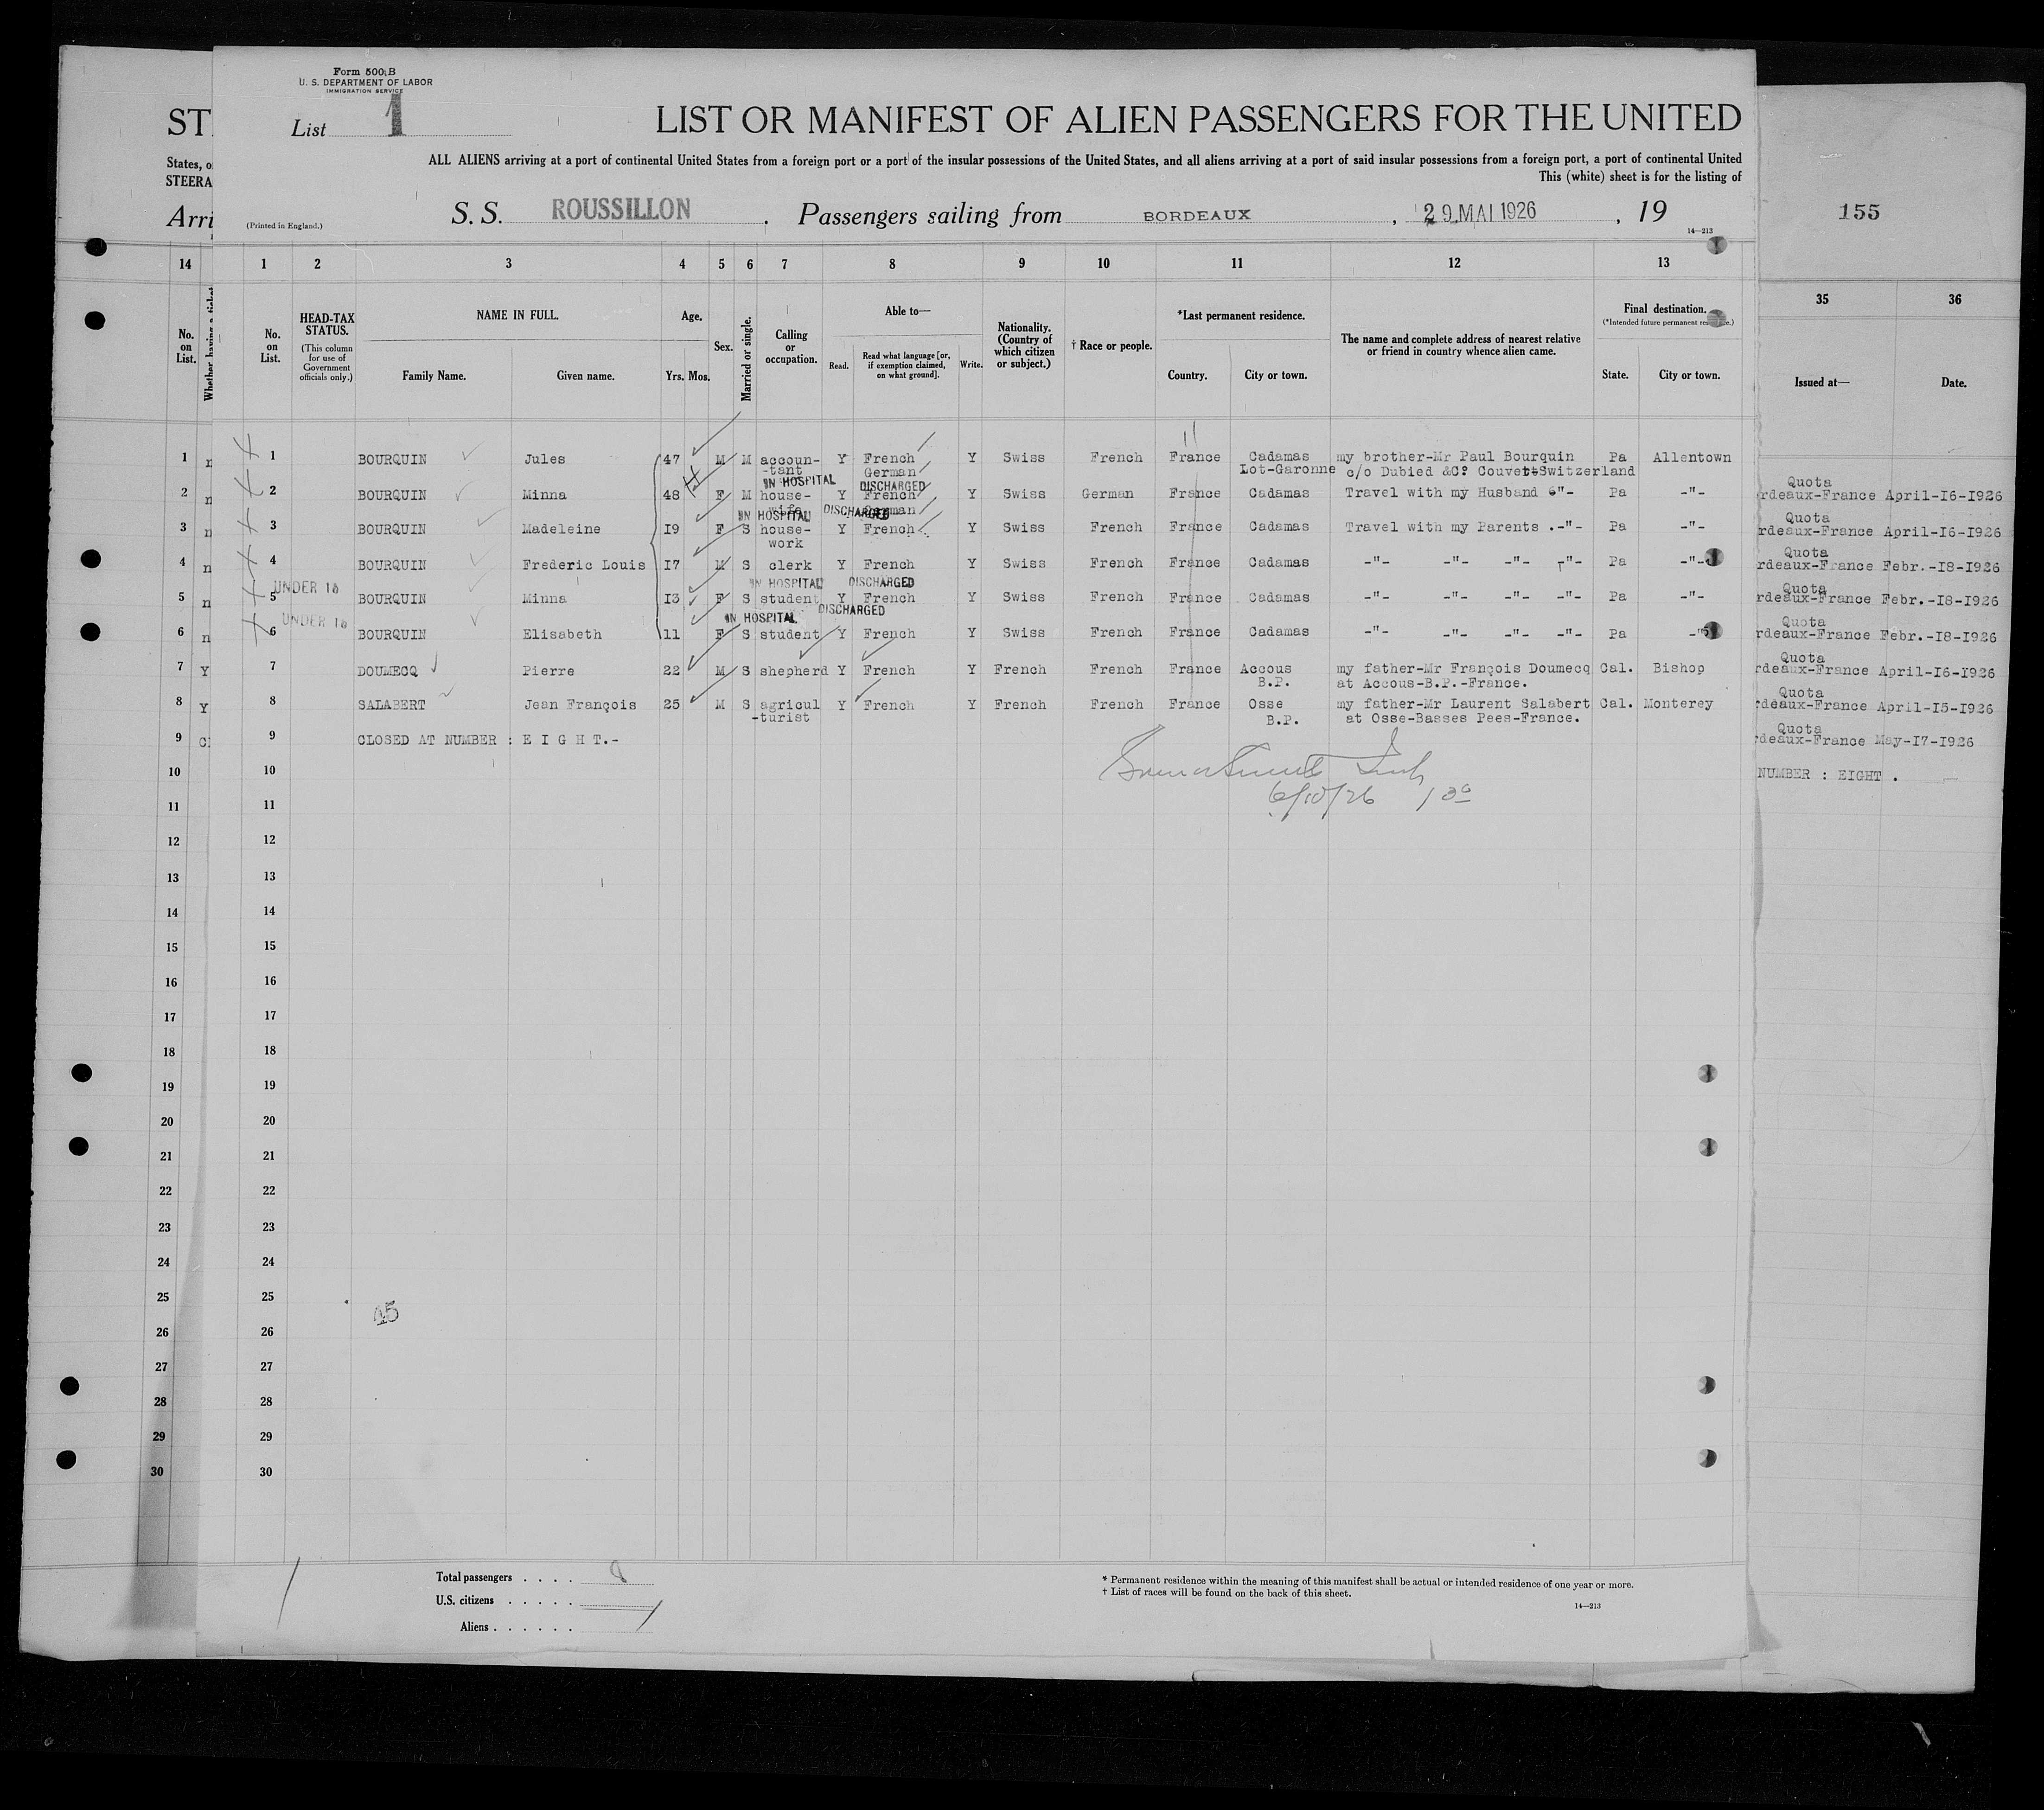 Form 500 B
U. S. DEPARTMENT OF LABOR
IMMIGRATION SERVICE
List 1
LIST OR MANIFEST OF ALIEN PASSENGERS FOR THE UNITED
ALL ALIENS arriving at a port of continental United States from a foreign port or a port of the insular possessions of the United States, and all aliens arriving at a port of said insular possessions from a foreign port, a port of continental United
This (white) sheet is for the listing of
(Printed in England.)
S. S. ROUSSILLON , Passengers sailing from BORDEAUX , 29 MAI 1926 , 19
14—213
155
ST
States, o
STEERA
Arri
14 1 2 3 4 5 6 7 8 9 10 11 12 13 35 36
No. on List.
Whether having a ticket
No. on List.
HEAD-TAX STATUS.
(This column for use of Government officials only.)
NAME IN FULL.
Family Name. Given name.
Age.
Yrs. Mos.
Sex.
Married or single.
Calling or occupation.
Able to—
Read. Read what language [or, if exemption claimed, on what ground]. Write.
Nationality. (Country of which citizen or subject.)
† Race or people.
*Last permanent residence.
Country. City or town.
The name and complete address of nearest relative or friend in country whence alien came.
Final destination.
(*Intended future permanent residence.)
State. City or town.
Issued at— Date.
1 n 1 BOURQUIN Jules 47 M M accoun- Y French Y Swiss French France Cadamas my brother-Mr Paul Bourquin Pa Allentown
-tant German Lot-Garonne c/o Dubied &C° Couvet Switzerland
IN HOSPITAL DISCHARGED
Quota
2 n 2 BOURQUIN Minna 48 F M house- Y French Y Swiss German France Cadamas Travel with my Husband -"- Pa -"- rdeaux-France April-I6-I926
wife German
IN HOSPITAL DISCHARGED
Quota
3 n 3 BOURQUIN Madeleine I9 F S house- Y French Y Swiss French France Cadamas Travel with my Parents .-"- Pa -"- rdeaux-France April-I6-I926
work
Quota
4 n 4 BOURQUIN Frederic Louis I7 M S clerk Y French Y Swiss French France Cadamas -"- -"- -"- -"- Pa -"- rdeaux-France Febr.-I8-I926
UNDER 16 IN HOSPITAL DISCHARGED
Quota
5 n 5 BOURQUIN Minna I3 F S student Y French Y Swiss French France Cadamas -"- -"- -"- -"- Pa -"- rdeaux-France Febr.-I8-I926
UNDER 16 IN HOSPITAL DISCHARGED
Quota
6 n 6 BOURQUIN Elisabeth 11 F S student Y French Y Swiss French France Cadamas -"- -"- -"- -"- Pa -"- rdeaux-France Febr.-I8-I926
Quota
7 Y 7 DOUMECQ Pierre 22 M S shepherd Y French Y French French France Accous my father-Mr François Doumecq Cal. Bishop rdeaux-France April-I6-I926
B.P. at Accous-B.P.-France.
Quota
8 Y 8 SALABERT Jean François 25 M S agricul Y French Y French French France Osse my father-Mr Laurent Salabert Cal. Monterey rdeaux-France April-I5-I926
-turist B.P. at Osse-Basses Pees-France.
Quota
9 Cl 9 CLOSED AT NUMBER : E I G H T.- rdeaux-France May-I7-I926
10 10 NUMBER : EIGHT .
6/10/26 1 30
11 11
12 12
13 13
14 14
15 15
16 16
17 17
18 18
19 19
20 20
21 21
22 22
23 23
24 24
25 25
45
26 26
27 27
28 28
29 29
30 30
Total passengers . . . . 8
U.S. citizens . . . . .
Aliens . . . . . .
* Permanent residence within the meaning of this manifest shall be actual or intended residence of one year or more.
† List of races will be found on the back of this sheet.
14—213